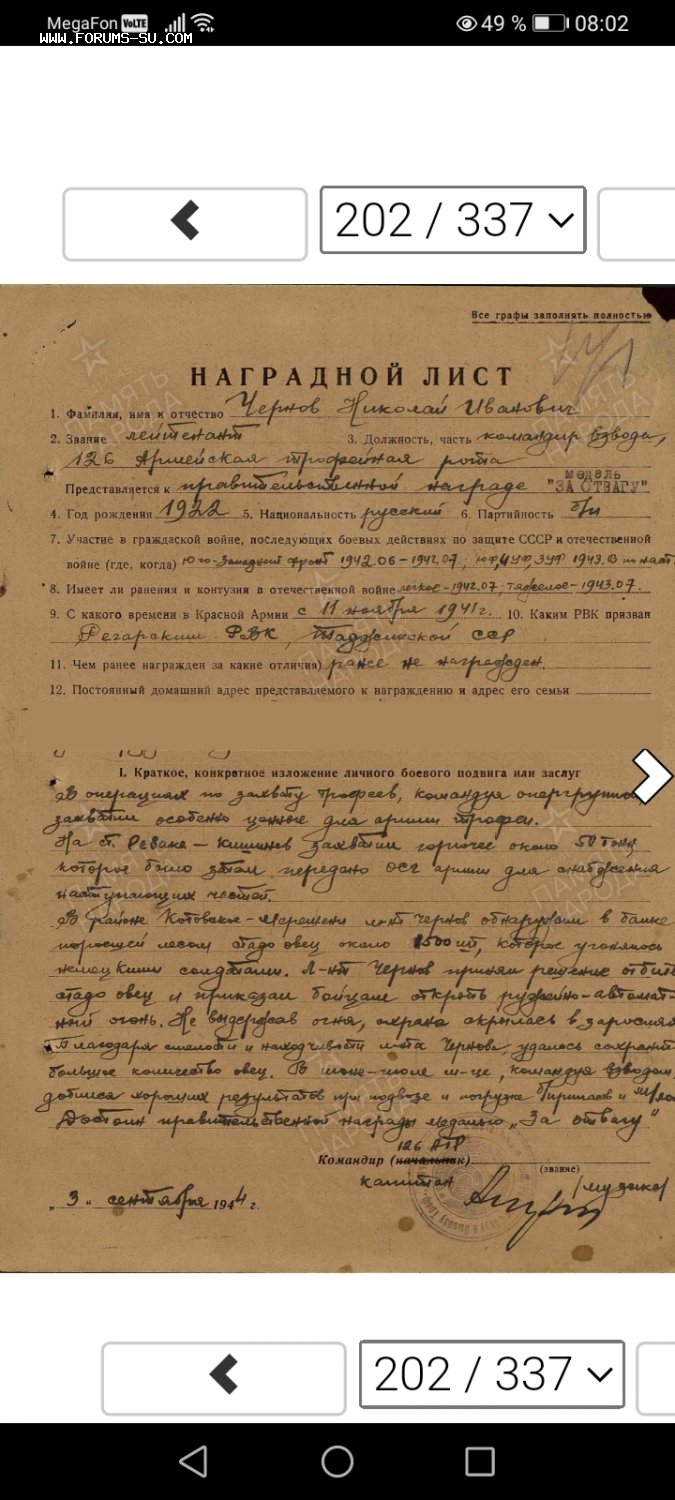 MegaFon VoLTE 49 % 08:02
www.FORUMS-SU.COM
202 / 337
Все графы заполнять полностью
НАГРАДНОЙ ЛИСТ
1. Фамилия, имя и отчество Чернов Николай Иванович
2. Звание лейтенант 3. Должность, часть командир взвода,
126 Армейская трофейная рота
Представляется к правительственной награде медаль "ЗА ОТВАГУ"
4. Год рождения 1922 5. Национальность русский 6. Партийность б/п
7. Участие в граждаской войне, последующих боевых действиях по защите СССР и отечественной
войне (где, когда) Юго-Западный фронт 1942.06 – 1942.07; ЮФ, 4УФ, 3УФ 1943.
8. Имеет ли ранения и контузии в отечественной войне легкое – 1942.07, тяжелое – 1943.07.
9. С какого времени в Красной Армии с 11 ноября 1941 г. 10. Каким РВК призван
Регарским РВК, Таджикской ССР
11. Чем ранее награжден за какие отличия) ранее не награжден.
12. Постоянный домашний адрес представляемого к награждению и адрес его семьи
I. Краткое, конкретное изложение личного боевого подвига или заслуг
В операциях по захвату трофеев, командуя опергруппой
захватил особенно ценные для армии трофеи.
На ст. Ревака – Кишинев захватил горючее около 50 тонн,
которое было этом передано ОСГ армии для снабжения
наступающих частей.
В районе Котовское – л-нт Чернов обнаружил в балке
поросшей лесом стадо овец около 1500 шт, которое угонялось
немецкими солдатами. Л-нт Чернов принял решение отбить
стадо овец и приказал бойцам открыть ружейно-автомат-
ный огонь. Не выдержав огня, охрана скрылась в зарослях
Благодаря смелости и находчивости л-та Чернова удалось сохранить
большое количество овец. В июне-июле м-це, командуя взводом,
добился хороших результатов при подвозе и погрузке б/припасов и
Достоин правительственной награды медалью „За отвагу"
126 АТР
Командир (начальник)
(звание)
капитан
„3" сентября 1944 г.
202 / 337